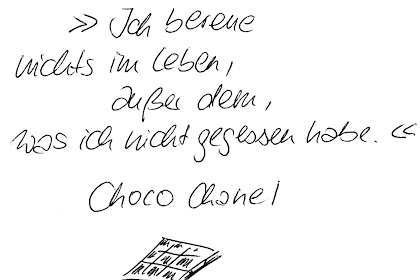 » Ich bereue
nichts im Leben,
außer dem,
was ich nicht gegessen habe. «
Choco Chanel